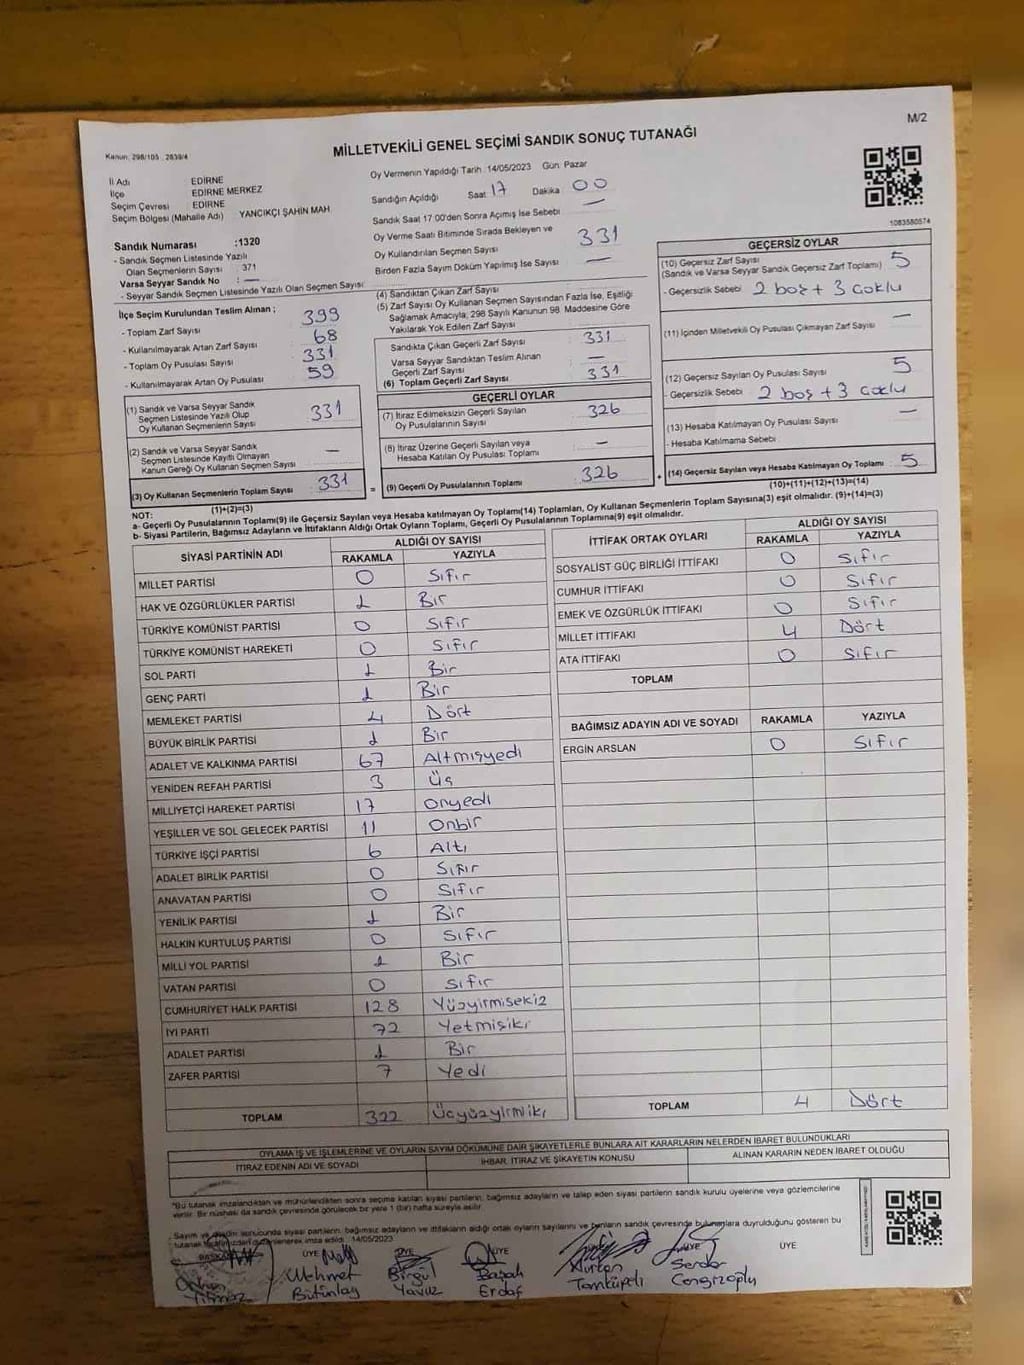 M/2
Kanun: 298/105 , 2839/4
MİLLETVEKİLİ GENEL SEÇİMİ SANDIK SONUÇ TUTANAĞI
1083580574
İl Adı EDİRNE
İlçe EDİRNE MERKEZ
Seçim Çevresi EDİRNE
Seçim Bölgesi (Mahalle Adı) YANCIKÇI ŞAHİN MAH
Sandık Numarası :1320
- Sandık Seçmen Listesinde Yazılı
Olan Seçmenlerin Sayısı : 371
Varsa Seyyar Sandık No : —
- Seyyar Sandık Seçmen Listesinde Yazılı Olan Seçmen Sayısı
Oy Vermenin Yapıldığı Tarih :14/05/2023 Gün: Pazar
Sandığın Açıldığı Saat 17 Dakika 00
Sandık Saat 17:00'den Sonra Açımış İse Sebebi —
Oy Verme Saati Bitiminde Sırada Bekleyen ve
Oy Kullandırılan Seçmen Sayısı 331
Birden Fazla Sayım Döküm Yapılmış İse Sayısı —
İlçe Seçim Kurulundan Teslim Alınan ;
- Toplam Zarf Sayısı 399
- Kullanılmayarak Artan Zarf Sayısı 68
- Toplam Oy Pusulası Sayısı 331
- Kullanılmayarak Artan Oy Pusulası 59
(1) Sandık ve Varsa Seyyar Sandık
Seçmen Listesinde Yazılı Olup
Oy Kullanan Seçmenlerin Sayısı 331
(2) Sandık ve Varsa Seyyar Sandık
Seçmen Listesinde Kayıtlı Olmayan
Kanun Gereği Oy Kullanan Seçmen Sayısı —
(3) Oy Kullanan Seçmenlerin Toplam Sayısı 331
(1)+(2)=(3)
(4) Sandıktan Çıkan Zarf Sayısı
(5) Zarf Sayısı Oy Kullanan Seçmen Sayısından Fazla İse, Eşitliği
Sağlamak Amacıyla; 298 Sayılı Kanunun 98. Maddesine Göre
Yakılarak Yok Edilen Zarf Sayısı
Sandıkta Çıkan Geçerli Zarf Sayısı 331
Varsa Seyyar Sandıktan Teslim Alınan
Geçerli Zarf Sayısı —
(6) Toplam Geçerli Zarf Sayısı 331
GEÇERLİ OYLAR
(7) İtiraz Edilmeksizin Geçerli Sayılan
Oy Pusulalarının Sayısı 326
(8) İtiraz Üzerine Geçerli Sayılan veya
Hesaba Katılan Oy Pusulası Toplamı —
= (9) Geçerli Oy Pusulalarının Toplamı 326
GEÇERSİZ OYLAR
(10) Geçersiz Zarf Sayısı 5
(Sandık ve Varsa Seyyar Sandık Geçersiz Zarf Toplamı)
- Geçersizlik Sebebi 2 boş + 3 çoklu
(11) İçinden Milletvekili Oy Pusulası Çıkmayan Zarf Sayısı —
(12) Geçersiz Sayılan Oy Pusulası Sayısı 5
- Geçersizlik Sebebi 2 boş + 3 çoklu
(13) Hesaba Katılmayan Oy Pusulası Sayısı —
- Hesaba Katılmama Sebebi
+ (14) Geçersiz Sayılan veya Hesaba Katılmayan Oy Toplamı 5
(10)+(11)+(12)+(13)=(14)
NOT:
a- Geçerli Oy Pusulalarının Toplamı(9) ile Geçersiz Sayılan veya Hesaba katılmayan Oy Toplamı(14) Toplamları, Oy Kullanan Seçmenlerin Toplam Sayısına(3) eşit olmalıdır. (9)+(14)=(3)
b- Siyasi Partilerin, Bağımsız Adayların ve İttifakların Aldığı Ortak Oyların Toplamı, Geçerli Oy Pusulalarının Toplamına(9) eşit olmalıdır.
SİYASİ PARTİNİN ADI ALDIĞI OY SAYISI
RAKAMLA YAZIYLA
MİLLET PARTİSİ 0 Sıfır
HAK VE ÖZGÜRLÜKLER PARTİSİ 1 Bir
TÜRKİYE KOMÜNİST PARTİSİ 0 Sıfır
TÜRKİYE KOMÜNİST HAREKETİ 0 Sıfır
SOL PARTİ 1 Bir
GENÇ PARTİ 1 Bir
MEMLEKET PARTİSİ 4 Dört
BÜYÜK BİRLİK PARTİSİ 1 Bir
ADALET VE KALKINMA PARTİSİ 67 Altmışyedi
YENİDEN REFAH PARTİSİ 3 Üç
MİLLİYETÇİ HAREKET PARTİSİ 17 Onyedi
YEŞİLLER VE SOL GELECEK PARTİSİ 11 Onbir
TÜRKİYE İŞÇİ PARTİSİ 6 Altı
ADALET BİRLİK PARTİSİ 0 Sıfır
ANAVATAN PARTİSİ 0 Sıfır
YENİLİK PARTİSİ 1 Bir
HALKIN KURTULUŞ PARTİSİ 0 Sıfır
MİLLİ YOL PARTİSİ 1 Bir
VATAN PARTİSİ 0 Sıfır
CUMHURİYET HALK PARTİSİ 128 Yüzyirmisekiz
İYİ PARTİ 72 Yetmişiki
ADALET PARTİSİ 1 Bir
ZAFER PARTİSİ 7 Yedi
TOPLAM 322 Üçyüzyirmiki
İTTİFAK ORTAK OYLARI ALDIĞI OY SAYISI
RAKAMLA YAZIYLA
SOSYALİST GÜÇ BİRLİĞİ İTTİFAKI 0 Sıfır
CUMHUR İTTİFAKI 0 Sıfır
EMEK VE ÖZGÜRLÜK İTTİFAKI 0 Sıfır
MİLLET İTTİFAKI 4 Dört
ATA İTTİFAKI 0 Sıfır
TOPLAM
BAĞIMSIZ ADAYIN ADI VE SOYADI RAKAMLA YAZIYLA
ERGİN ARSLAN 0 Sıfır
TOPLAM 4 Dört
OYLAMA İŞ VE İŞLEMLERİNE VE OYLARIN SAYIM DÖKÜMÜNE DAİR ŞİKAYETLERLE BUNLARA AİT KARARLARIN NELERDEN İBARET BULUNDUKLARI
İTİRAZ EDENİN ADI VE SOYADI İHBAR, İTİRAZ VE ŞİKAYETİN KONUSU ALINAN KARARIN NEDEN İBARET OLDUĞU
*Bu tutanak imzalandıktan ve mühürlendikten sonra seçime katılan siyasi partilerin, bağımsız adayların ve talep eden siyasi partilerin sandık kurulu üyelerine veya gözlemcilerine
verilir. Bir nüshası da sandık çevresinde görülecek bir yere 1 (bir) hafta süreyle asılır.
- Sayım ve döküm sonucunda siyasi partilerin, bağımsız adayların ve ittifakların aldığı ortak oyların sayılarını ve bunların sandık çevresinde bulunanlara duyrulduğunu gösteren bu
tutanak tarafımızdan düzenlenerek imza edildi. 14/05/2023
BAŞKAN ÜYE ÜYE ÜYE ÜYE ÜYE
Orhan Mehmet Birgül Başak Nurten Serdar
Yılmaz Bütünlay Yavuz Erdaş Tamküpeli Cengizoğlu